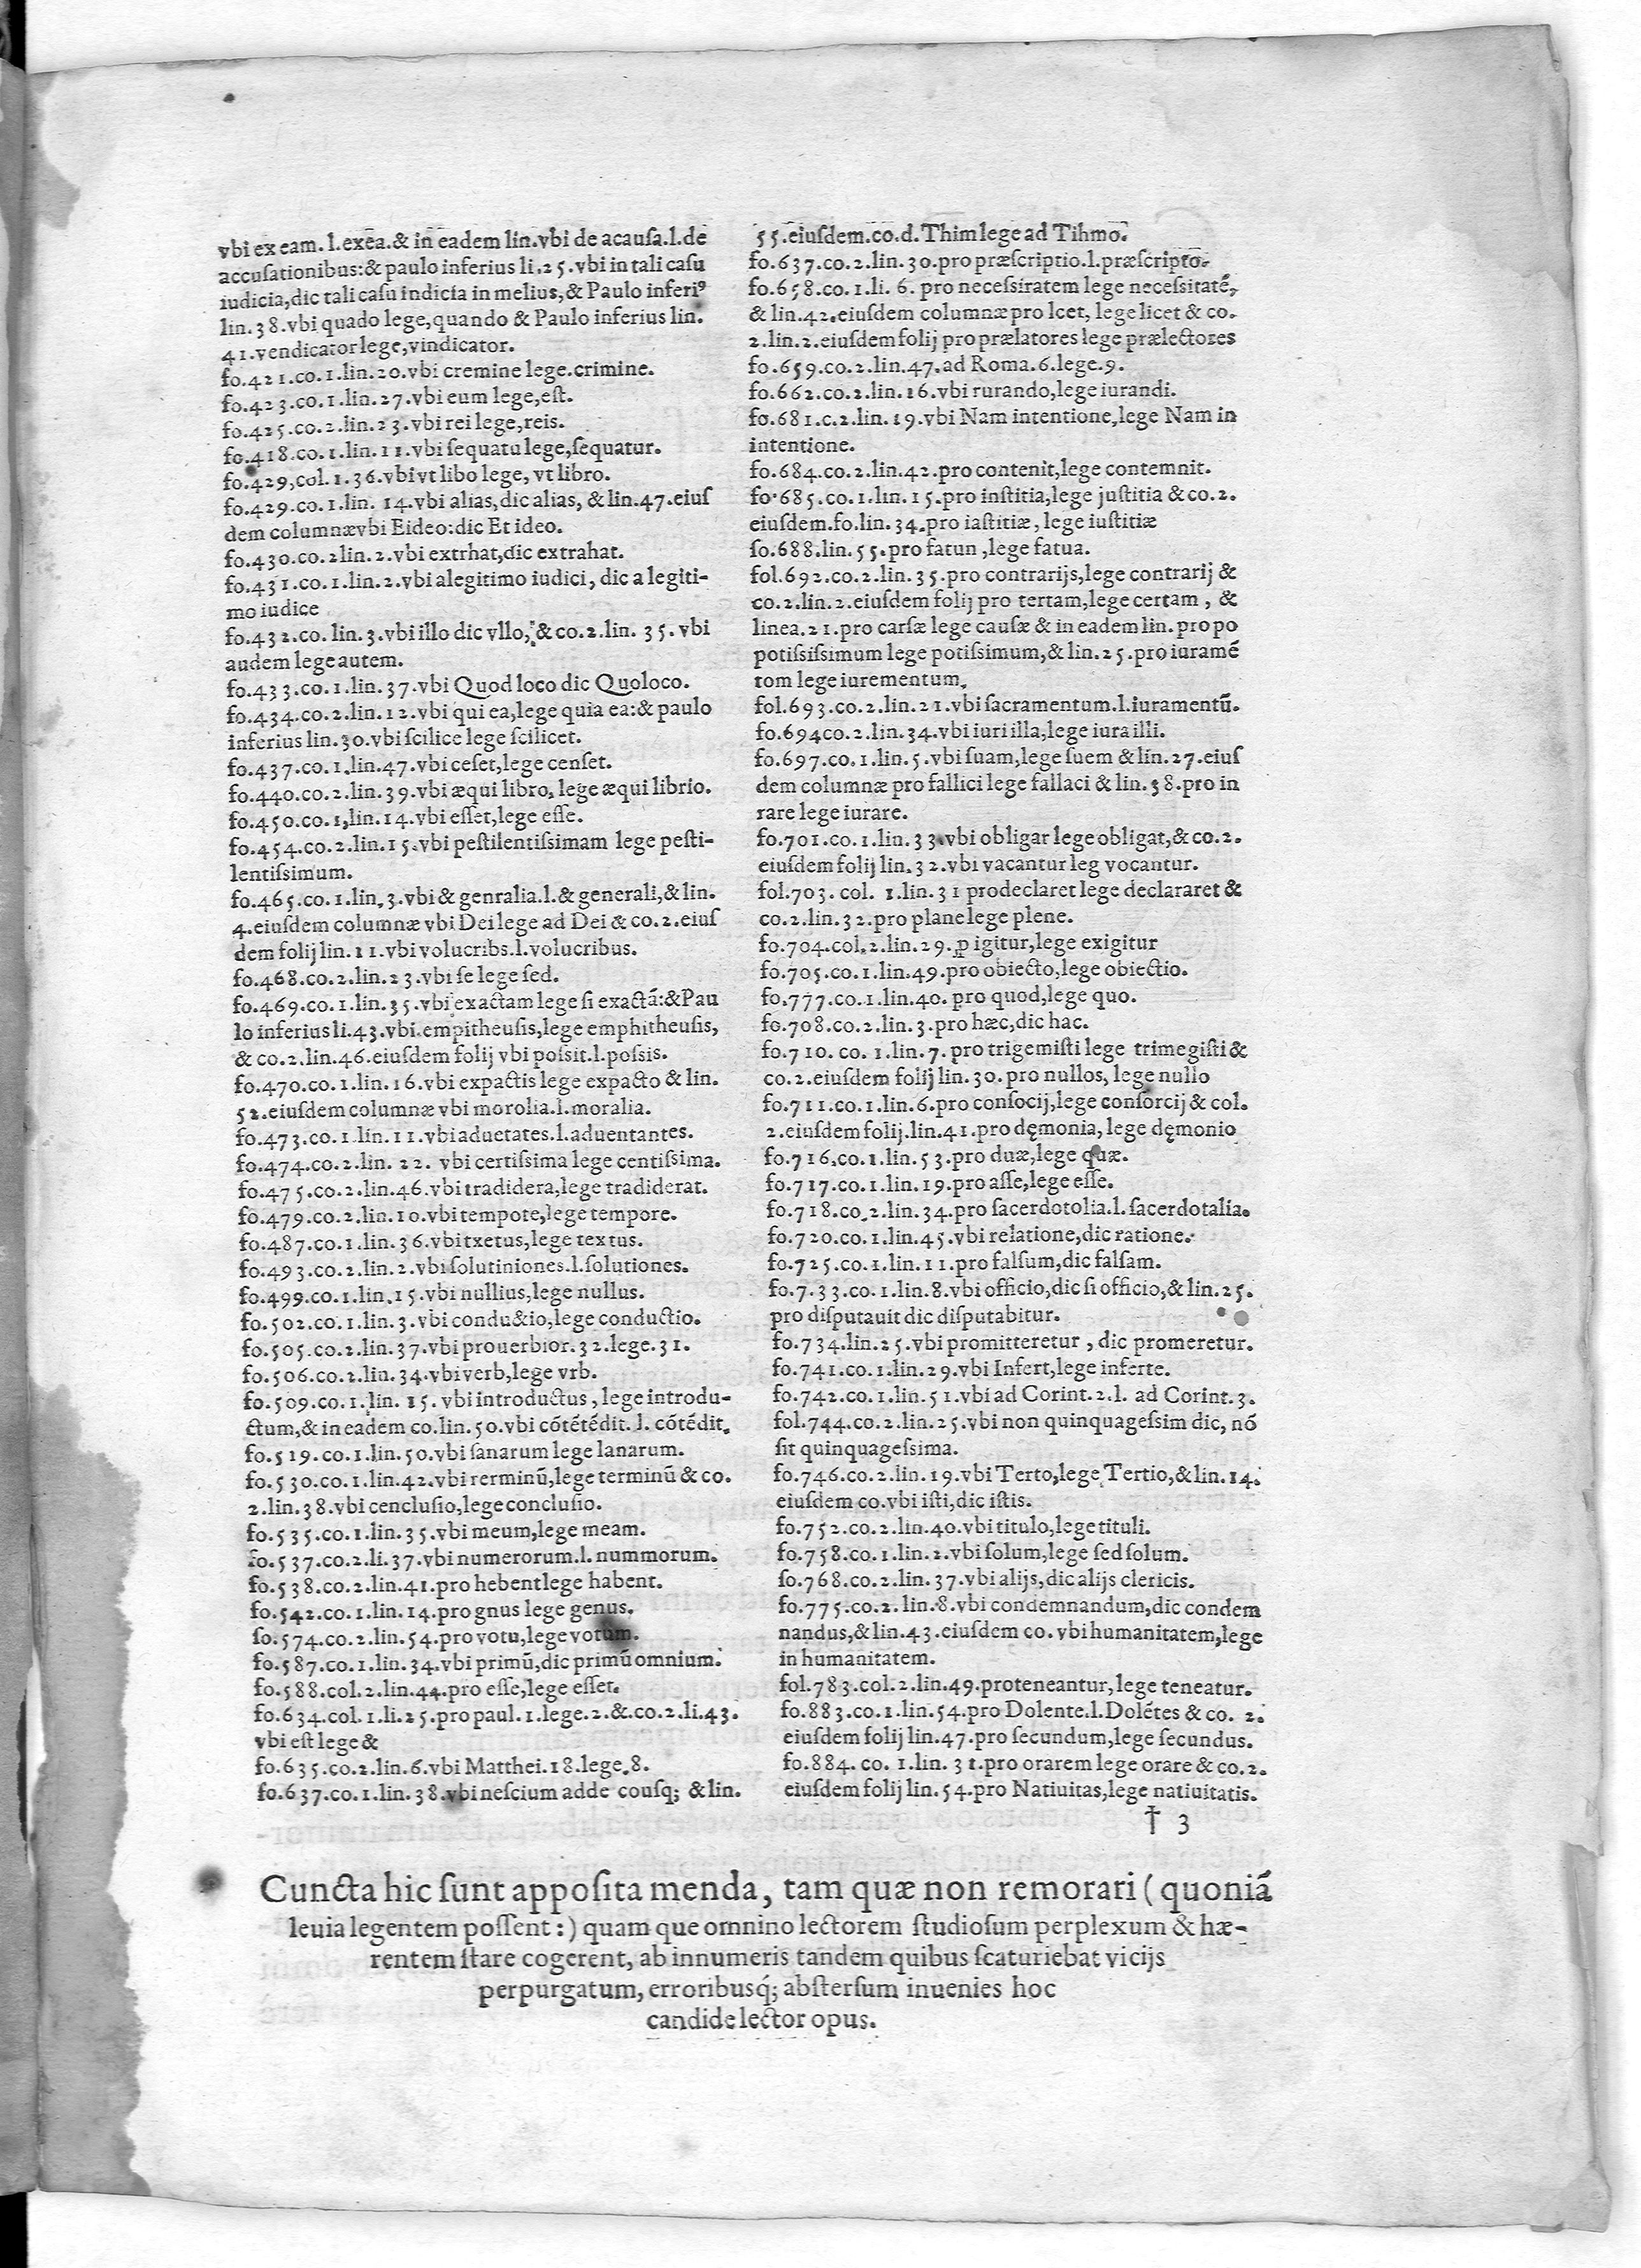 vbi ex eam.l.exēa.& in eadem lin.vbi de acauſa.l.de
accuſationibus:& paulo inferius li.25.vbi in tali caſu
iudicia,dic tali caſu indicia in melius,& Paulo inferiꝰ
lin.38.vbi quado lege,quando & Paulo inferius lin.
41.vendicator lege,vindicator.
fo.421.co.1.lin.20.vbi cremine lege.crimine.
fo.423.co.1.lin.27.vbi eum lege,eſt.
fo.425.co.2.lin.23.vbi rei lege,reis.
fo.418.co.1.lin.11.vbi ſequatu lege,ſequatur.
fo.429,col.1.36.vbi vt libo lege, vt libro.
fo.429.co.1.lin. 14.vbi alias,dic alias, & lin.47.eiuſ
dem columnævbi Eideo:dic Et ideo.
fo.430.co.2lin.2.vbi extrhat,dic extrahat.
fo.431.co.1.lin.2.vbi alegitimo iudici, dic a legiti-
mo iudice
fo.432.co. lin.3.vbi illo dic vllo, & co.2.lin. 35.vbi
audem lege autem.
fo.433.co.1.lin.37.vbi Quod loco dic Quoloco.
fo.434.co.2.lin.12.vbi qui ea,lege quia ea:& paulo
inferius lin.30.vbi ſcilice lege ſcilicet.
fo.437.co.1.lin.47.vbi ceſet,lege cenſet.
fo.440.co.2.lin.39.vbi æqui libro, lege æqui librio.
fo.450.co.1,lin.14.vbi eſſet,lege eſſe.
fo.454.co.2.lin.15.vbi peſtilentiſsimam lege peſti-
lentiſsimum.
fo.465.co.1.lin.3.vbi & genralia.l.& generali,& lin.
4.eiuſdem columnæ vbi Dei lege ad Dei & co.2.eiuſ
dem folij lin.11.vbi volucribs.l.volucribus.
fo.468.co.2.lin.23.vbi ſe lege ſed.
fo.469.co.1.lin.35.vbi exactam lege ſi exactã:&Pau
lo inferius li.43.vbi.empitheuſis,lege emphitheuſis,
& co.2.lin.46.eiuſdem folij vbi poſsit.l.poſsis.
fo.470.co.1.lin.16.vbi expactis lege expacto & lin.
52.eiuſdem columnæ vbi morolia.l.moralia.
fo.473.co.1.lin.11.vbiaduetates.l.aduentantes.
fo.474.co.2.lin. 22. vbi certiſsima lege centiſsima.
fo.475.co.2.lin.46.vbi tradidera,lege tradiderat.
fo.479.co.2.lin.10.vbi tempote,lege tempore.
fo.487.co.1.lin.36.vbi txetus,lege textus.
fo.493.co.2.lin.2.vbi ſolutiniones.l.ſolutiones.
fo.499.co.1.lin.15.vbi nullius,lege nullus.
fo.502.co.1.lin.3.vbi condu&io,lege conductio.
fo.505.co.2.lin.37.vbi prouerbior.32.lege.31.
fo.506.co.2.lin.34.vbi verb,lege vrb.
fo.509.co.1.lin. 15.vbi introductus, lege introdu-
ctum,& in eadem co.lin.50.vbi cõtétédit.l.cõtédit.
fo.519.co.1.lin.50.vbi ſanarum lege lanarum.
fo.530.co.1.lin.42.vbi rerminũ,lege terminũ & co.
2.lin.38.vbi cencluſio,lege concluſio.
fo.535.co.1.lin.35.vbi meum,lege meam.
fo.537.co.2.li.37.vbi numerorum.l.nummorum.
fo.538.co.2.lin.41.pro hebent lege habent.
fo.542.co.1.lin.14.pro gnus lege genus.
ſo.574.co.2.lin.54.pro votu,lege votum.
fo.587.co.1.lin.34.vbi primũ,dic primũ omnium.
fo.588.col.2.lin.44.pro eſſe,lege eſſet.
fo.634.col.1.li.25.pro paul.1.lege.2.&.co.2.li.43.
vbi eſt lege &
fo.635.co.2.lin.6.vbi Matthei.18.lege.8.
fo.637.co.1.lin.38.vbi neſcium adde couſq; & lin.
55.eiuſdem.co.d.Thim lege ad Tihmo.
fo.637.co.2.lin.30.pro præſcriptio.l.præſcripto.
fo.658.co.1.li.6. pro neceſsiratem lege neceſsitatẽ,
& lin.42.eiuſdem columnæ pro lcet, lege licet & co.
2.lin.2.eiuſdem folij pro prælatores lege prælectores
fo.659.co.2.lin.47.ad Roma.6.lege.9.
fo.662.co.2.lin.16.vbi rurando,lege iurandi.
fo.681.c.2.lin.19.vbi Nam intentione,lege Nam in
intentione.
fo.684.co.2.lin.42.pro contenit,lege contemnit.
fo.685.co.1.lin.15.pro inſtitia,lege juſtitia & co.2.
eiuſdem.fo.lin.34.pro iaſtitiæ, lege iuſtitiæ
ſo.688.lin.55.pro fatun ,lege fatua.
fol.692.co.2.lin.35.pro contrarijs,lege contrarij &
co.2.lin.2.eiuſdem folij pro tertam,lege certam , &
linea.21.pro carſæ lege cauſæ & in eadem lin.pro po
potiſsiſsimum lege potiſsimum,& lin.25.pro iuramẽ
tom lege iurementum.
fol.693.co.2.lin.21.vbi ſacramentum.l.iuramentũ.
fo.694co.2.lin.34.vbi iuri illa,lege iura illi.
fo.697.co.1.lin.5.vbi ſuam,lege ſuem & lin.27.eiuſ
dem columnæ pro fallici lege fallaci & lin.38.pro in
rare lege iurare.
fo.701.co.1.lin.33.vbi obligar lege obligat,& co.2.
eiuſdem folij lin.32.vbi vacantur leg vocantur.
fol.703.col. 1.lin.31 prodeclaret lege declararet &
co.2.lin.32.pro plane lege plene.
fo.704.col.2.lin.29.ꝓ igitur,lege exigitur
fo.705.co.1.lin.49.pro obiecto,lege obiectio.
fo.777.co.1.lin.40. pro quod,lege quo.
fo.708.co.2.lin.3.pro hæc,dic hac.
fo.710. co. 1.lin.7. pro trigemiſti lege trimegiſti &
co.2.eiuſdem folij lin.30.pro nullos, lege nullo
fo.711.co.1.lin.6.pro conſocij,lege conſorcij & col.
2.eiuſdem folij.lin.41.pro dęmonia, lege dęmonio
fo.716.co.1.lin.53.pro duæ,lege quæ.
fo.717.co.1.lin.19.pro aſſe,lege eſſe.
fo.718.co.2.lin.34.pro ſacerdotolia.l.ſacerdotalia.
fo.720.co.1.lin.45.vbi relatione,dic ratione.
fo.725.co.1.lin.11.pro falſum,dic falſam.
fo.7.33.co.1.lin.8.vbi officio,dic ſi officio,& lin.25.
pro diſputauit dic diſputabitur.
fo.734.lin.25.vbi promitteretur , dic promeretur.
fo.741.co.1.lin.29.vbi Infert,lege inferte.
fo.742.co.1.lin.51.vbi ad Corint.2.l. ad Corint.3.
fol.744.co.2.lin.25.vbi non quinquageſsim dic, nõ
ſit quinquageſsima.
fo.746.co.2.lin.19.vbi Terto,lege Tertio,& lin.14.
eiuſdem co.vbi iſti,dic iſtis.
fo.752.co.2.lin.40.vbi titulo,lege tituli.
fo.758.co.1.lin.2.vbi ſolum,lege ſed ſolum.
ſo.768.co.2.lin.37.vbi alijs,dic alijs clericis.
fo.775.co.2.lin.8.vbi condemnandum,dic condem
nandus,& lin.43.eiuſdem co.vbi humanitatem,lege
in humanitatem.
fol.783.col.2.lin.49.proteneantur,lege teneatur.
fo.883.co.1.lin.54.pro Dolente.l.Doletés & co. 2.
eiuſdem folij lin.47.pro ſecundum,lege ſecundus.
fo.884. co. 1.lin. 31.pro orarem lege orare & co.2.
eiuſdem folij lin.54.pro Natiuitas,lege natiuitatis.
† 3
Cuncta hic ſunt appoſita menda, tam quæ non remorari ( quoniã
leuia legentem poſſent : ) quam que omnino lectorem ſtudioſum perplexum & hæ-
rentem ſtare cogerent, ab innumeris tandem quibus ſcaturiebat vicijs
perpurgatum, erroribusq́; abſterſum inuenies hoc
candide lector opus.